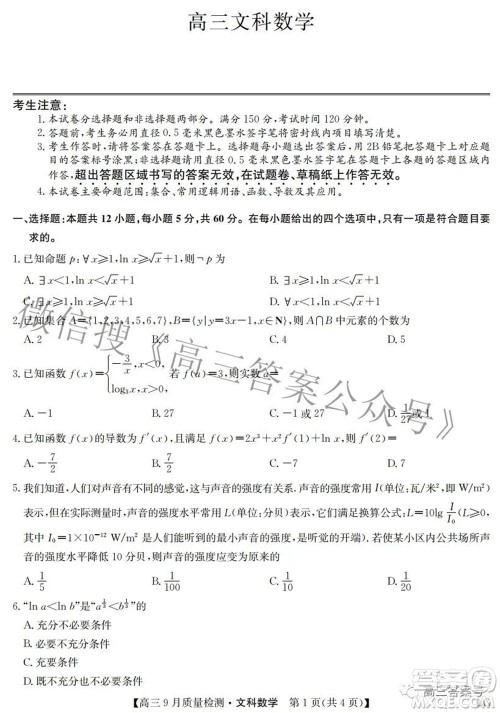 高三文科数学
考生注意:
1.本试卷分选择题和非选择题两部分。满分150分,考试时间120分钟。
2.答题前,考生务必用直径0.5毫米黑色墨水签字笔将密封线内项目填写清楚。
3.考生作答时,请将答案答在答题卡上。选择题每小题选出答案后,用2B铅笔把答题卡上对应题目的答案标号涂黑;非选择题请用直径0.5毫米黑色墨水签字笔在答题卡上各题的答题区域内作答,超出答题区域书写的答案无效,在试题卷、草稿纸上作答无效。
4.本试卷主要命题范围:集合、常用逻辑用语、函数、导数及其应用。
一、选择题:本题共12小题,每小题5分,共60分。在每小题给出的四个选项中,只有一项是符合题目要
求的。
1.已知命题p:∀x≥1,ln x≥√x+1,则¬p为
A.∃x<1,ln x<√x+1 B.∀x≥1,ln x<√x+1
C.∃x≥1,ln x<√x+1 D.∀x<1,ln x<√x+1
2.已知集合A={1,2,3,4,5,6,7},B={y|y=3x-1,x∈N},则A∩B中元素的个数为
A.2 B.3 C.4 D.5
3.已知函数f(x)={-3/x,x<0, log₃x,x>0, 若f(a)=3,则实数a=
A.-1 B.27 C.-1或27 D.1/27或1
4.已知函数f(x)的导数为f′(x),且满足f(x)=2x³+x²f′(1)+ln x,则f′(2)=
A.-7/2 B.7/2 C.-7 D.7
5.我们知道,人们对声音有不同的感觉,这与声音的强度有关系。声音的强度常用I(单位:瓦/米²,即W/m²)
表示,但在实际测量时,声音的强度水平常用L(单位:分贝)表示,它们满足换算公式:L=10lg I/I₀(L≥0,
其中I₀=1×10⁻¹² W/m²是人们能听到的最小声音的强度,是听觉的开端)。若使某小区内公共场所声音的
强度水平降低10分贝,则声音的强度应变为原来的
A.1/5 B.1/100 C.1/10 D.1/20
6.“ln a<ln b”是“a^{1/3}<b^{1/3}”的
A.充分不必要条件
B.必要不充分条件
C.充要条件
D.既不充分也不必要条件
【高三9月质量检测·文科数学 第1页(共4页)】
微信搜《高三答案公众号》
高三答案号